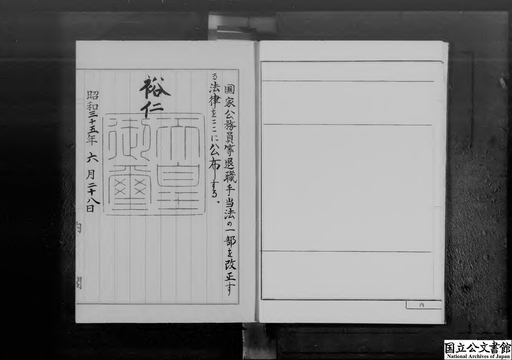 国家公務員等退職手当法の一部を改正す
る法律をここに公布する。
裕仁
天皇
御璽
昭和三十五年 六月二十八日
国立公文書館
National Archives of Japan